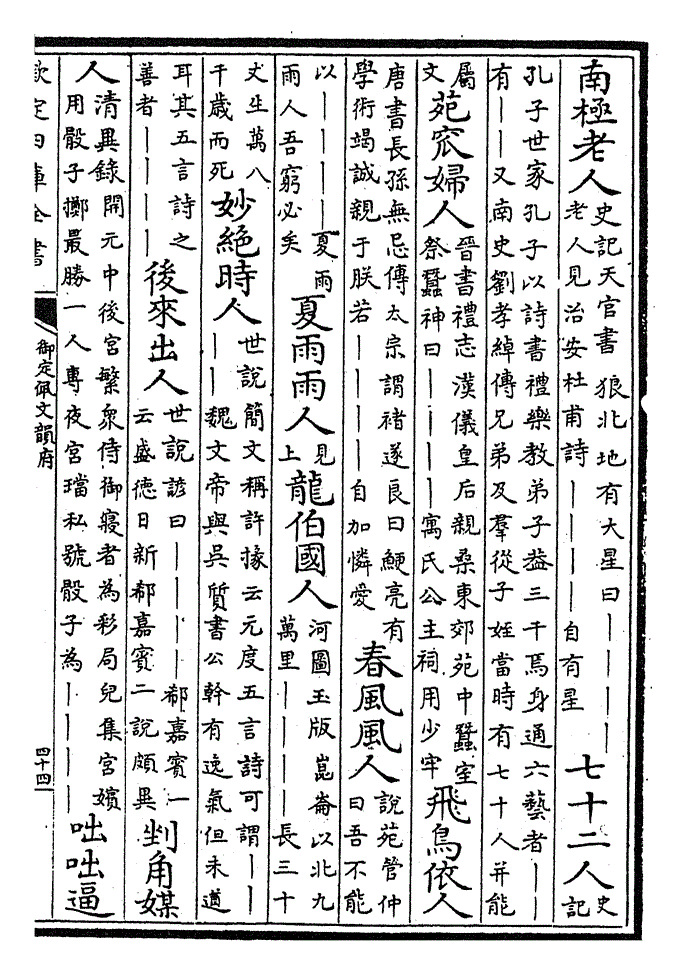 南極老人
史記天官書狼北地有大星曰丨丨丨丨
老人見治安杜甫詩丨丨丨丨自有星
七十二人
史
記
孔子世家孔子以詩書禮樂教弟子葢三千焉身通六藝者丨丨
有丨丨又南史劉孝綽傳兄弟及羣從子姪當時有七十人并能
屬
文
苑窊婦人
晉書禮志漢儀皇后親桑東郊苑中蠶室
祭蠶神曰丨丨丨丨寓氏公主祠用少牢
飛鳥依人
唐書長孫無忌傳太宗謂褚遂良曰鯁亮有
學術竭誠親于朕若丨丨丨丨自加憐愛
春風風人
說苑管仲
曰吾不能
以丨丨丨丨夏雨
雨人吾窮必矣
夏雨雨人
見
上
龍伯國人
河圖玉版崑崙以北九
萬里丨丨丨丨長三十
丈生萬八
千歲而死
妙絕時人
世說簡文稱許掾云元度五言詩可謂丨丨
丨丨魏文帝與吳質書公幹有逸氣但未遒
耳其五言詩之
善者丨丨丨丨
後來出人
世說諺曰丨丨丨丨郗嘉賓一
云盛德日新郗嘉賓二說頗異
剉角媒
人
清異錄開元中後宮繁衆侍御寢者為彩局兒集宮嬪
用骰子擲最勝一人專夜宮璫私號骰子為丨丨丨丨
咄咄逼
欽定四庫全書
御定佩文韻府
四十四